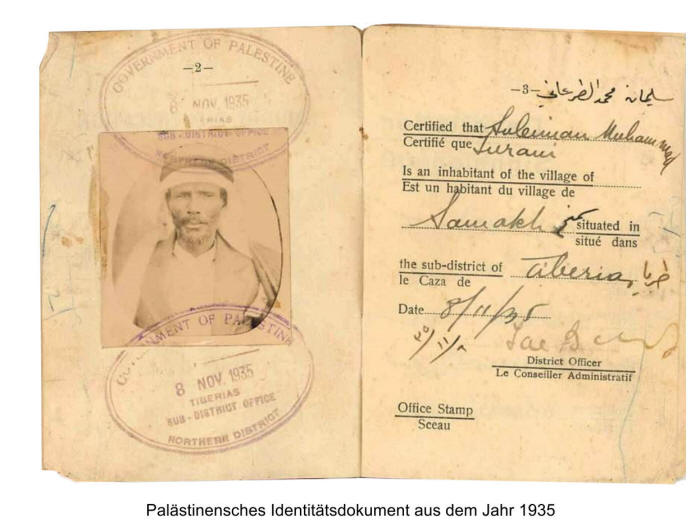 GOVERNMENT OF PALESTINE
—2—
8 NOV. 1935
SUB-DISTRICT OFFICE
NORTHERN DISTRICT
GOVERNMENT OF PALESTINE
8 NOV. 1935
TIBERIAS
SUB-DISTRICT OFFICE
NORTHERN DISTRICT
—3—
سليمان محمد
Certified that Suleiman Muhammad
Certifié que Turani
Is an inhabitant of the village of
Est un habitant du village de
Samakh سمخ situated in
situé dans
the sub-district of Tiberias طبريا
le Caza de
Date 8/11/35
٣٥/١١/٨
District Officer
Le Conseiller Administratif
Office Stamp
Sceau
Palästinensches Identitätsdokument aus dem Jahr 1935